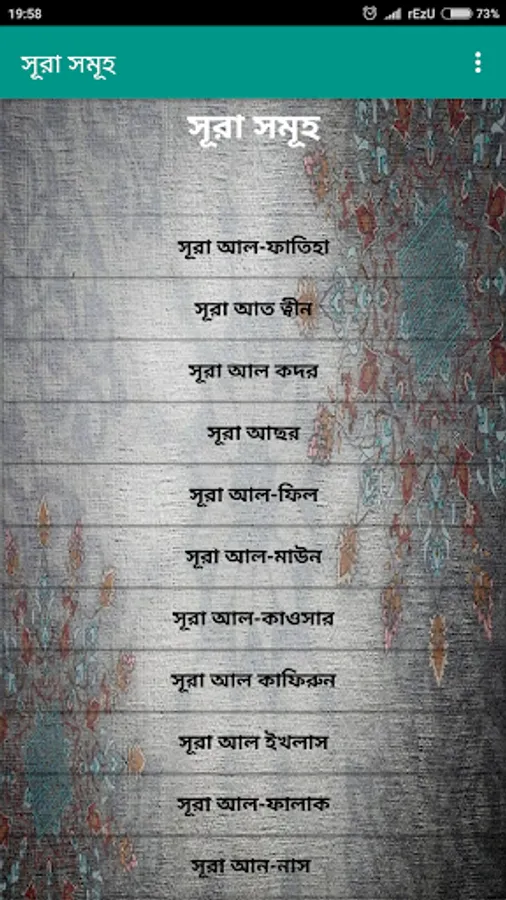 19:58 rEzU 73%
সূরা সমূহ
সূরা সমূহ
সূরা আল-ফাতিহা
সূরা আত ত্বীন
সূরা আল কদর
সূরা আছর
সূরা আল-ফিল
সূরা আল-মাউন
সূরা আল-কাওসার
সূরা আল কাফিরুন
সূরা আল ইখলাস
সূরা আল-ফালাক
সূরা আন-নাস